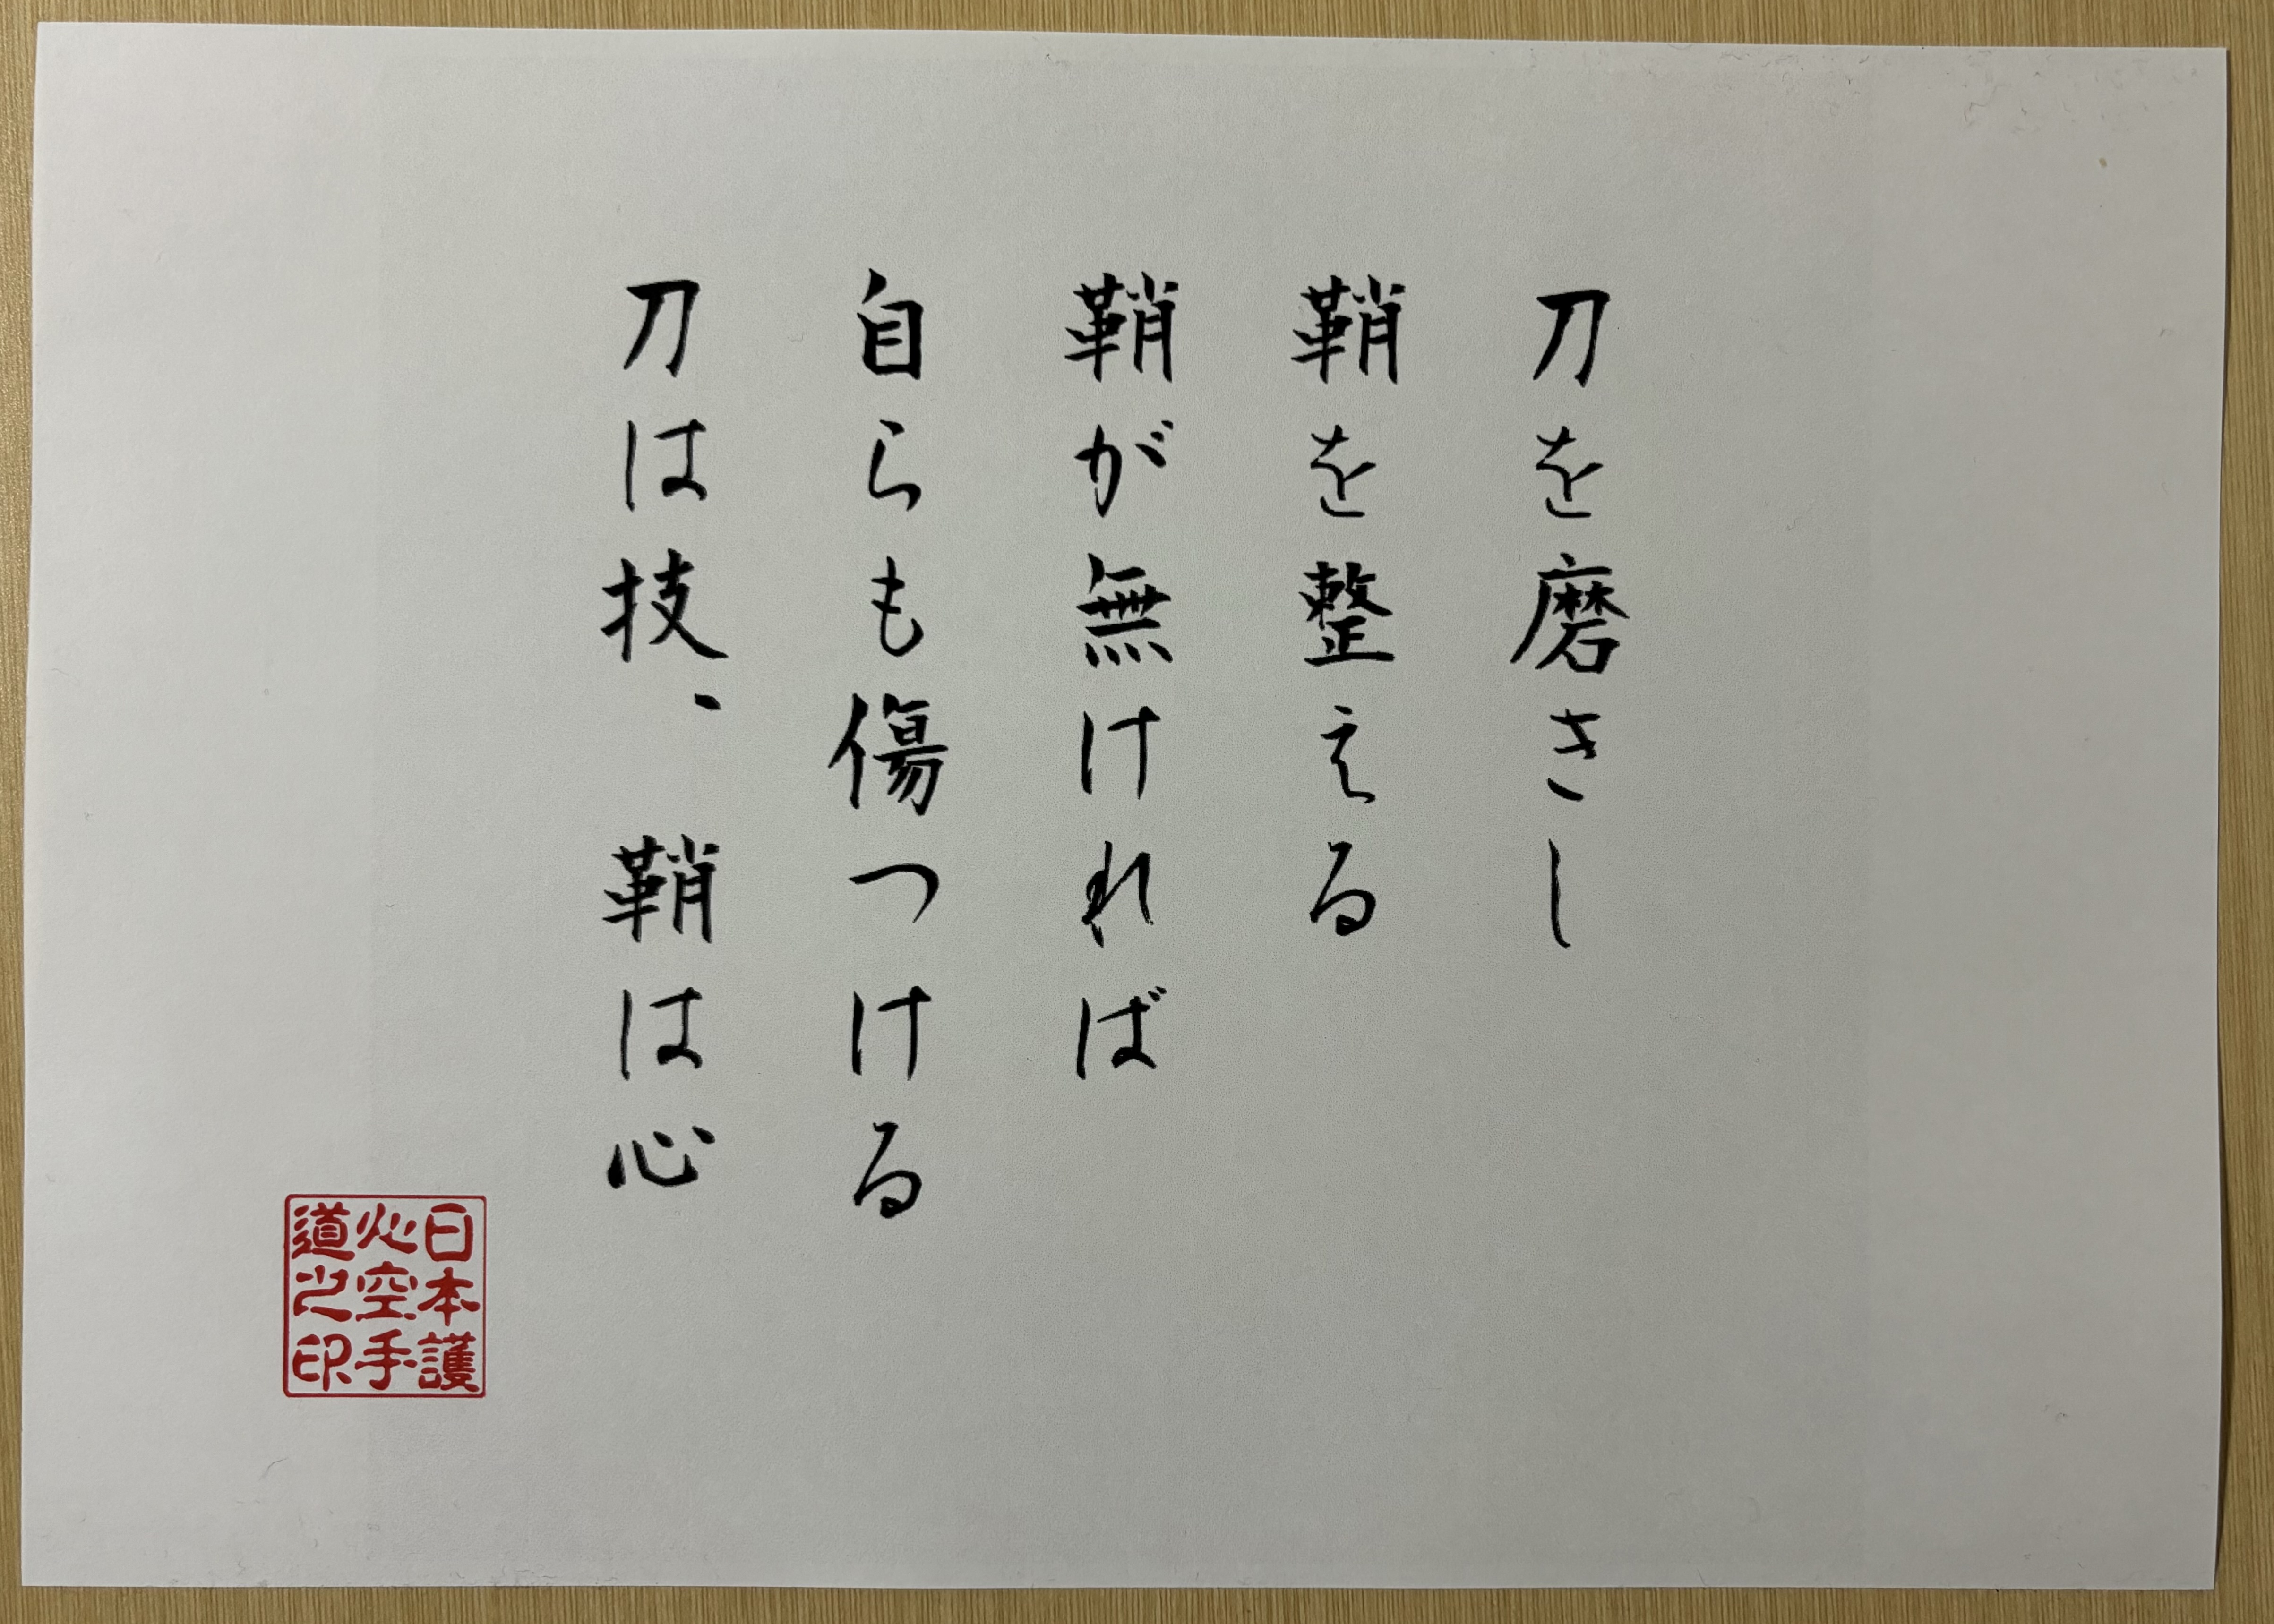 刀を磨きし
鞘を整える
鞘が無ければ
自らも傷つける
刀は技、鞘は心
日本護
心空手
道之印